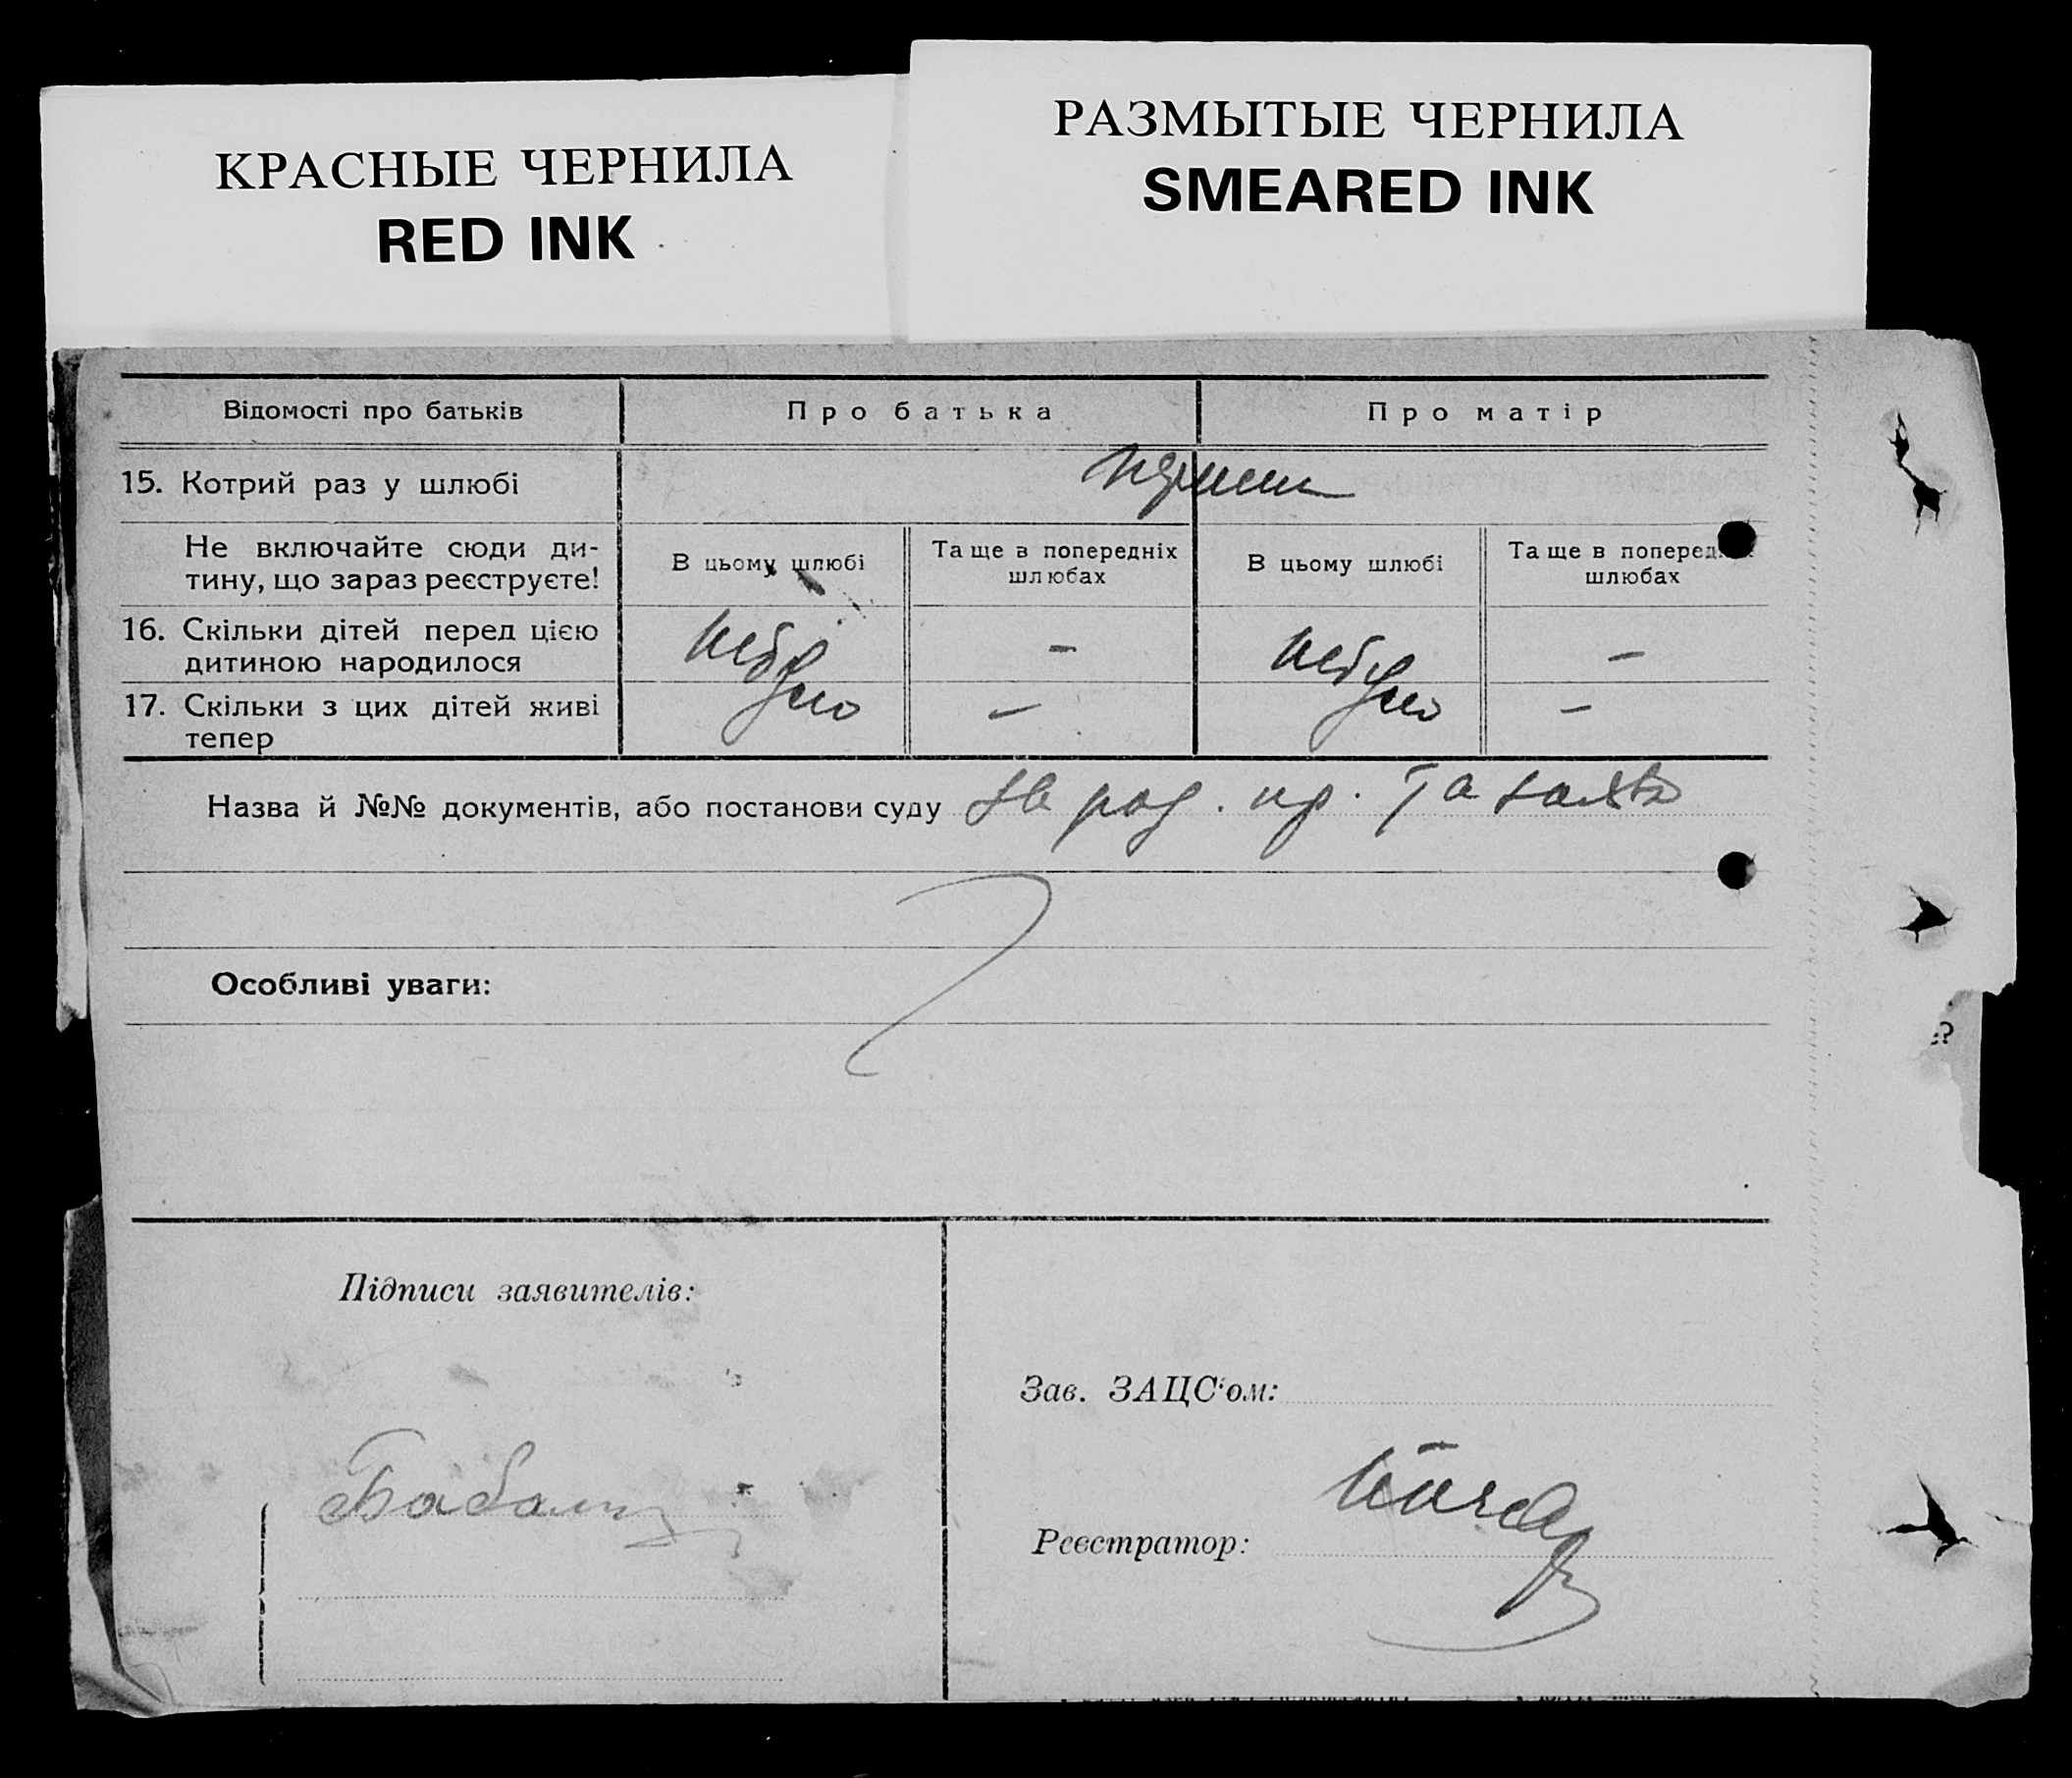 КРАСНЫЕ ЧЕРНИЛА
RED INK
РАЗМЫТЫЕ ЧЕРНИЛА
SMEARED INK
Відомості про батьків
Про батька
Про матір
15. Котрий раз у шлюбі
Не включайте сюди ди-
тину, що зараз реєструєте!
В цьому шлюбі
Та ще в попередніх
шлюбах
В цьому шлюбі
Та ще в поперед
шлюбах
16. Скільки дітей перед цією
дитиною народилося
небуло
–
небуло
–
17. Скільки з цих дітей живі
тепер
–
–
Назва й №№ документів, або постанови суду
Особливі уваги:
Підписи заявителів:
Зав. ЗАЦС'ом:
Реєстратор: